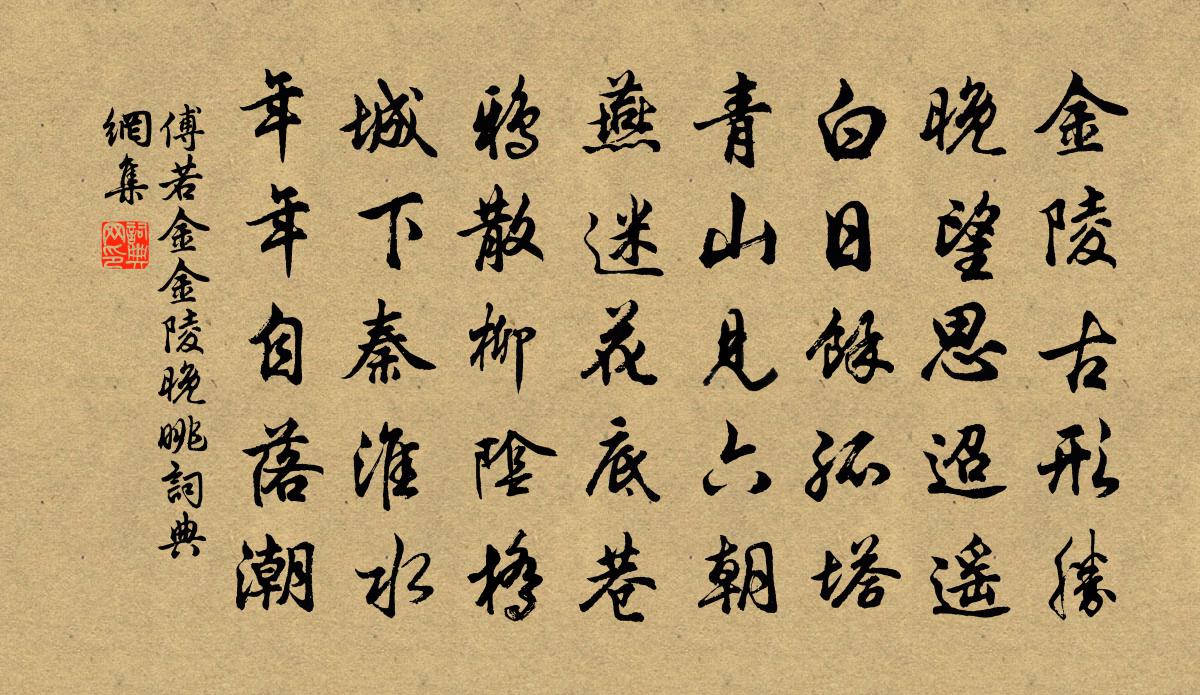 金陵古形勝
晚望思迢遥
白日餘孤塔
青山見六朝
燕迷花底巷
鴉散柳陰橋
城下秦淮水
年年自落潮
傅若金金陵晚眺詞典
網集
詞典
网印